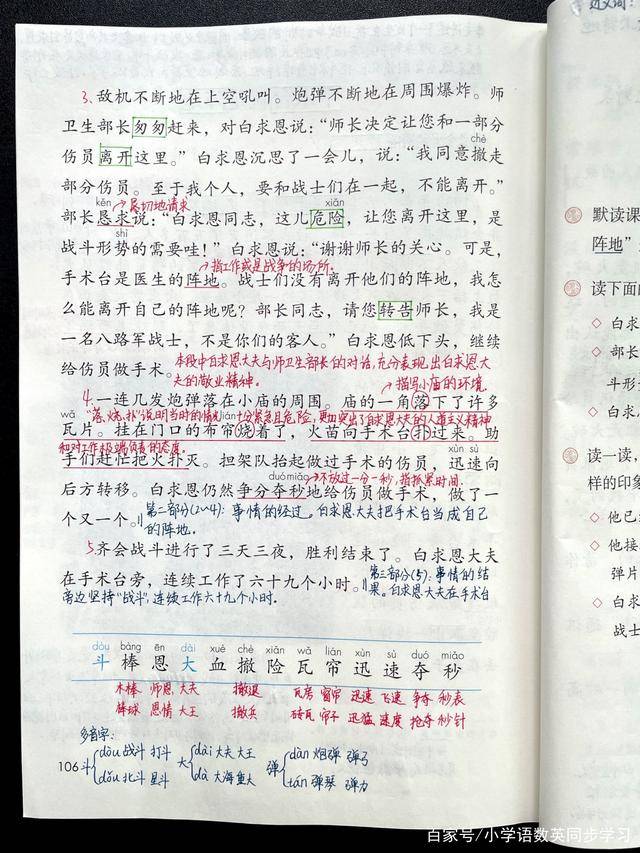 近义词：
3.敌机不断地在上空吼叫。炮弹不断地在周围爆炸。师
卫生部长匆匆赶来，对白求恩说：“师长决定让您和一部分
chè
伤员离开这里。”白求恩沉思了一会儿，说：“我同意撤走
部分伤员。至于我个人，要和战士们在一起，不能离开。”
kěn
恳切地请求
xiǎn
部长恳求说：“白求恩同志，这儿危险，让您离开这里，是
shì
战斗形势的需要哇！”白求恩说：“谢谢师长的关心。可是，
指工作或是战争的场所。
手术台是医生的阵地。战士们没有离开他们的阵地，我怎
么能离开自己的阵地呢？部长同志，请您转告师长，我是
一名八路军战士，不是你们的客人。”白求恩低下头，继续
给伤员做手术。
本段中白求恩大夫与师卫生部长的对话，充分表现出白求恩大
夫的敬业精神。
描写小庙的环境
4.一连几发炮弹落在小庙的周围。庙的一角落下了许多
wǎ
“落、烧、扑”说明当时的情况十分紧急且危险，更加突出了白求恩大夫的人道主义精神
lián
瓦片。挂在门口的布帘烧着了，火苗向手术台扑过来。助
和对工作极端负责的态度。
xùn sù
手们赶忙把火扑灭。担架队抬起做过手术的伤员，迅速向
duó miǎo
不放过一分一秒，指抓紧时间。
后方转移。白求恩仍然争分夺秒地给伤员做手术，做了一
个又一个。
第二部分(2~4)：事情的经过。白求恩大夫把手术台当成自己
的阵地。
5.齐会战斗进行了三天三夜，胜利结束了。白求恩大夫
在手术台旁，连续工作了六十九个小时。
第三部分(5)：事情的结
果。白求恩大夫在手术台
旁边坚持“战斗”，连续工作六十九个小时。
dòu bàng ēn dài xuè chè xiǎn wǎ lián xùn sù duó miǎo
斗 棒 恩 大 血 撤 险 瓦 帘 迅 速 夺 秒
木棒 师恩 大夫 撤退 瓦房 窗帘 迅速 飞速 争夺 秒表
棒球 恩情 大王 撤兵 砖瓦 帘子 迅猛 速度 抢夺 秒针
多音字：
斗 dòu 战斗 打斗 dǒu 北斗 星斗
大 dài 大夫 大王 dà 大海 重大
弹 dàn 炮弹 弹弓 tán 弹琴 弹力
106
默读课
阵地”
读下面
◇ 白求
◇ 部长
斗形
◇ 白求
读一读，
样的印象
◇ 他已
◇ 他接
弹片
◇ 白求
战士
百家号/小学语数英同步学习